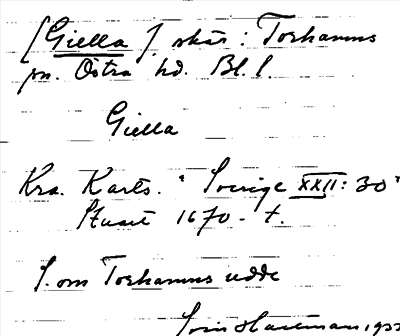 [Giella] skär: Torhamns
sn. Östra hd. Bl. l.
Giella
Kra. Karts. "Sverige XXII: 30"
Stuart 1670-t.
S. om Torhamns udde
Hartman